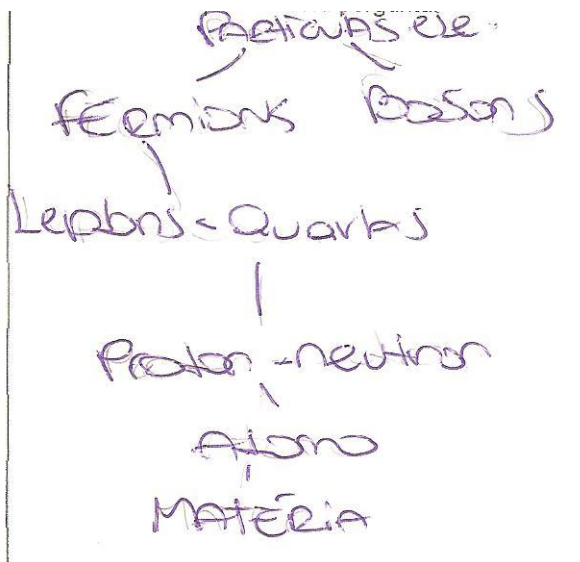 Particulas ele.
FÉRmions Bósons
Leptons - Quarks
Proton - neutiron
Atomo
MATÉRIA